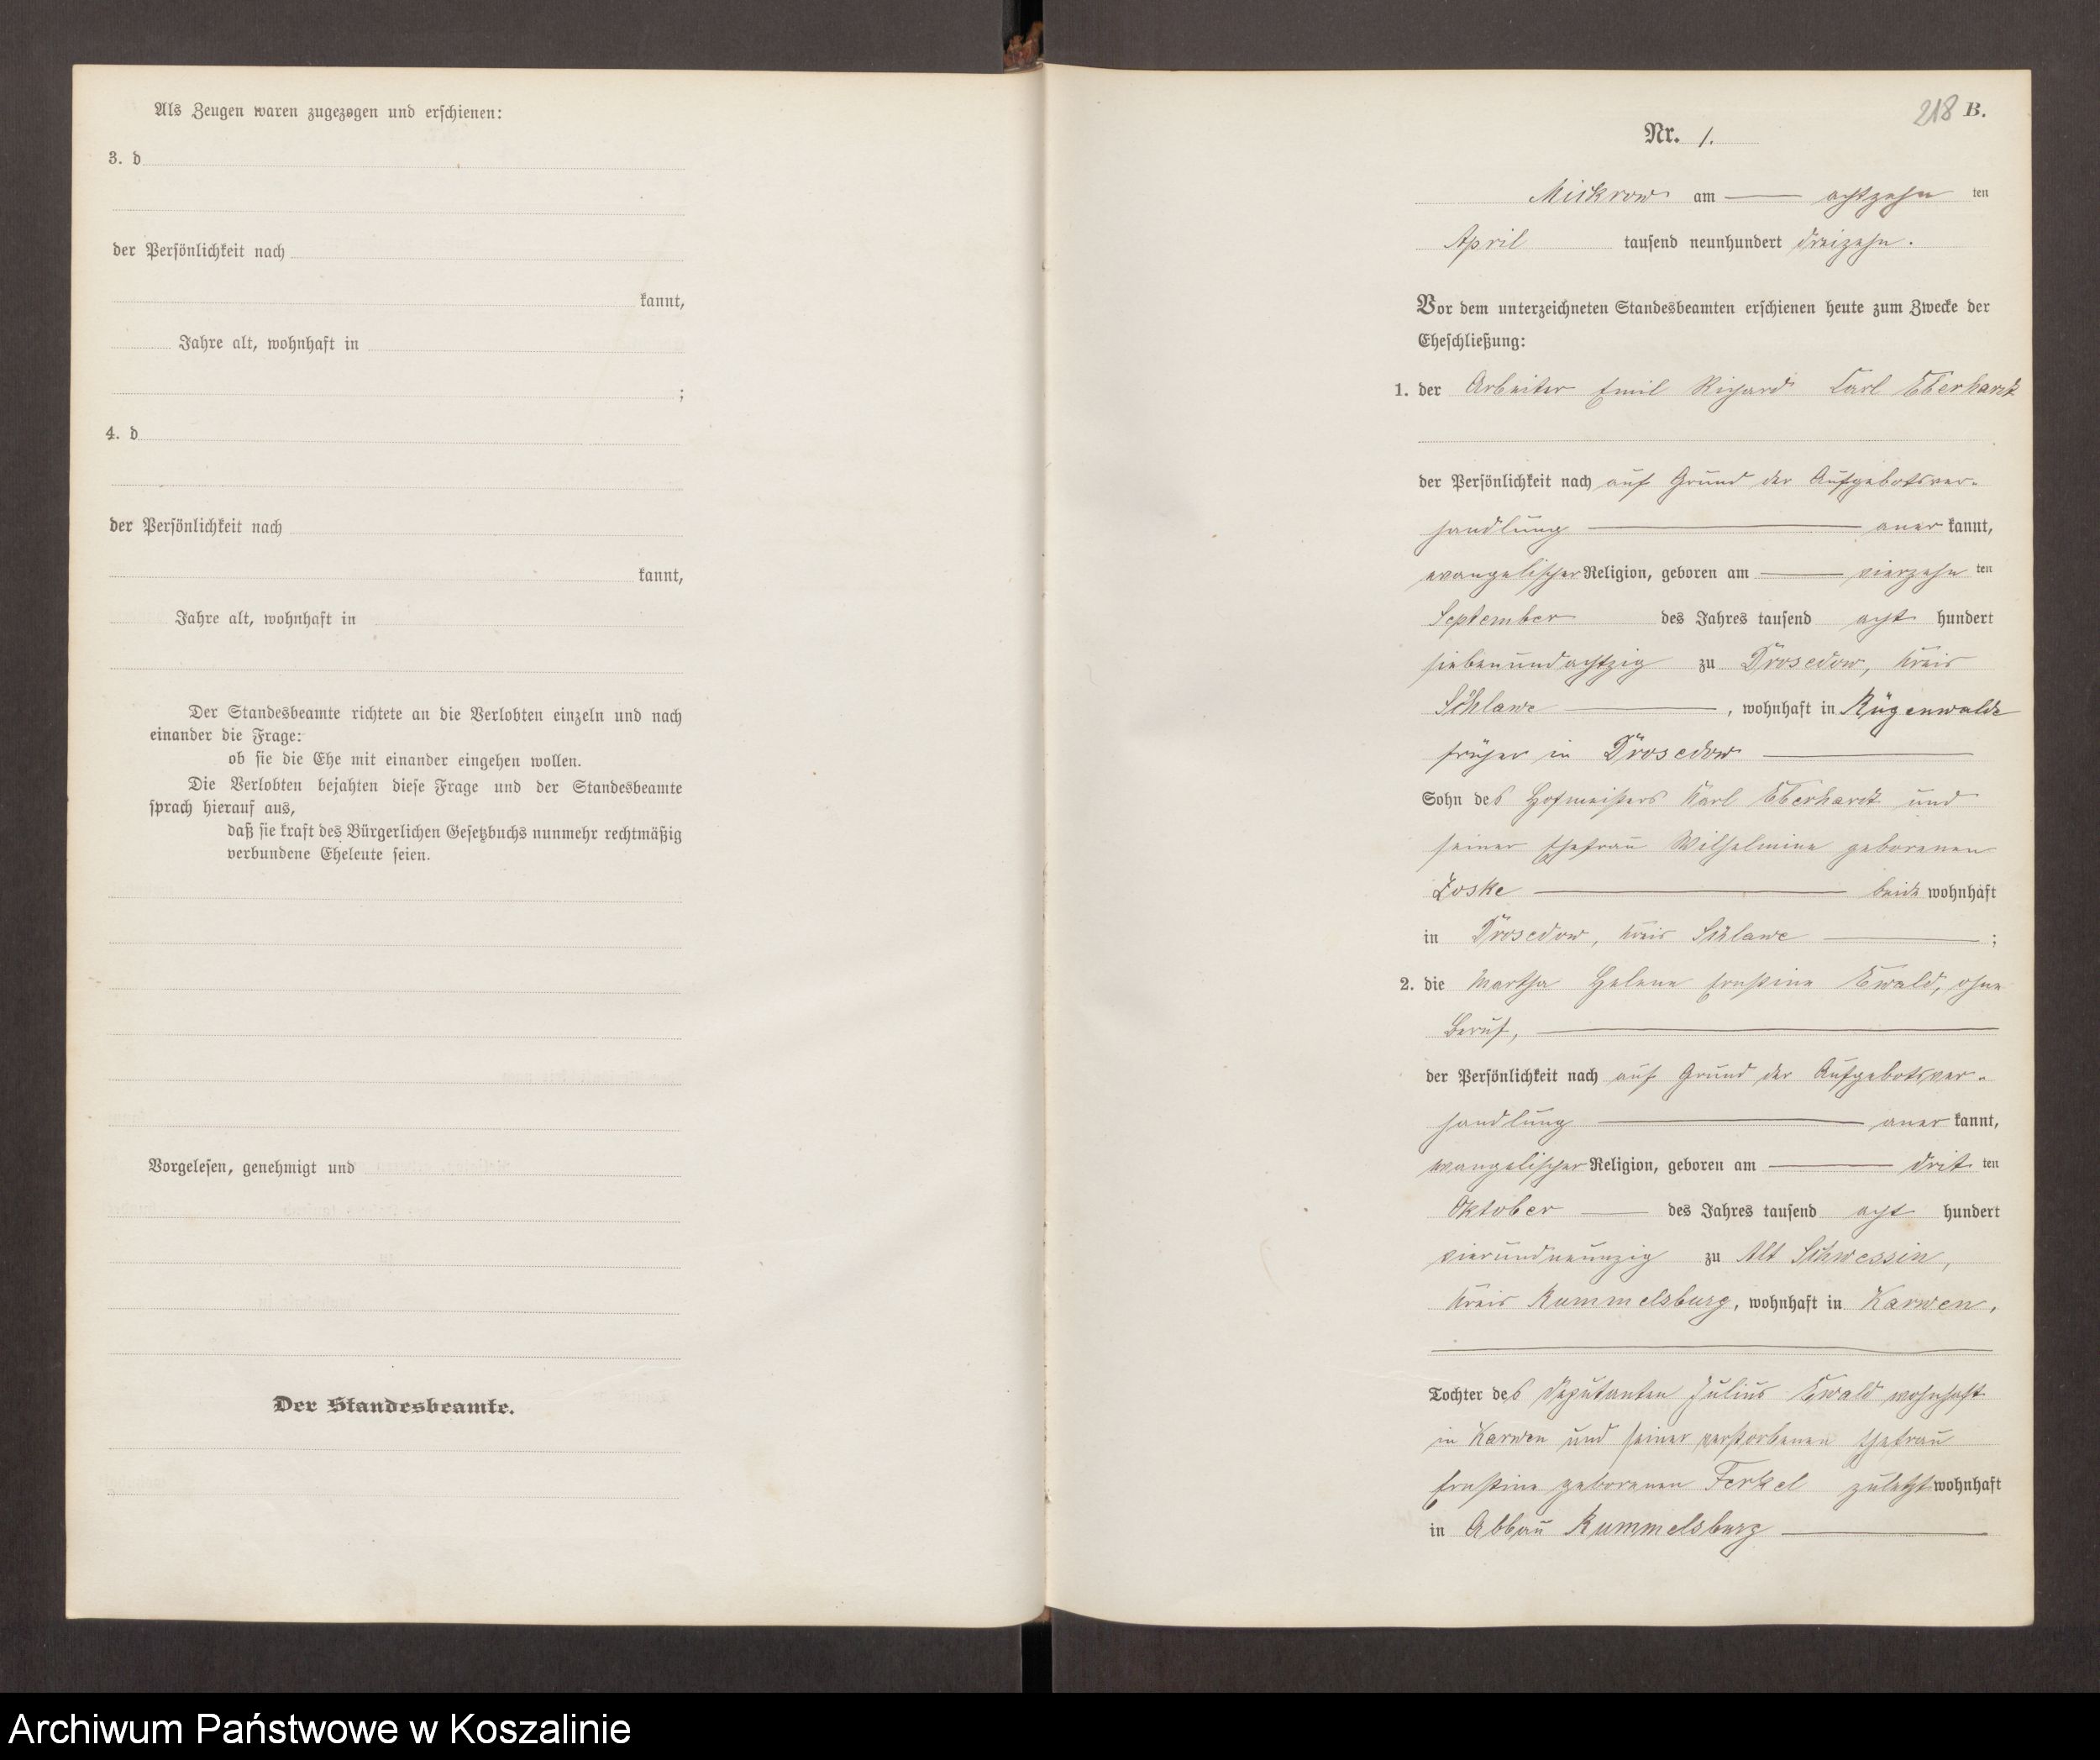 Als Zeugen waren zugezogen und erschienen:
3. d
der Persönlichkeit nach
kannt,
Jahre alt, wohnhaft in
;
4. d
der Persönlichkeit nach
kannt,
Jahre alt, wohnhaft in
Der Standesbeamte richtete an die Verlobten einzeln und nach
einander die Frage:
ob sie die Ehe mit einander eingehen wollen.
Die Verlobten bejahten diese Frage und der Standesbeamte
sprach hierauf aus,
daß sie kraft des Bürgerlichen Gesetzbuchs nunmehr rechtmäßig
verbundene Eheleute seien.
Vorgelesen, genehmigt und
Der Standesbeamte.
218 B.
Nr. 1.
Mickrow am achtzehn ten
April tausend neunhundert dreizehn.
Vor dem unterzeichneten Standesbeamten erschienen heute zum Zwecke der
Eheschließung:
1. der Arbeiter Emil Richard Carl Eberhardt
der Persönlichkeit nach auf Grund der Aufgebotsver-
handlung aner kannt,
evangelischer Religion, geboren am vierzehn ten
September des Jahres tausend acht hundert
siebenundachtzig zu Drosedow, Kreis
Schlawe, wohnhaft in Rügenwalde
früher in Drosedow
Sohn des Hofmeisters Karl Eberhardt und
seiner Ehefrau Wilhelmine geborenen
Zoske beide wohnhaft
in Drosedow, Kreis Schlawe ;
2. die Martha Helene Ernstine Ewald, ohne
Beruf,
der Persönlichkeit nach auf Grund der Aufgebotsver-
handlung aner kannt,
evangelischer Religion, geboren am drit ten
Oktober des Jahres tausend acht hundert
vierundneunzig zu Alt Schwessin,
Kreis Rummelsburg, wohnhaft in Karwen,
Tochter des Deputanten Julius Ewald wohnhaft
in Karwen und seiner verstorbenen Ehefrau
Ernstine geborenen Ferkel zuletzt wohnhaft
in Abbau Rummelsburg
Archiwum Państwowe w Koszalinie